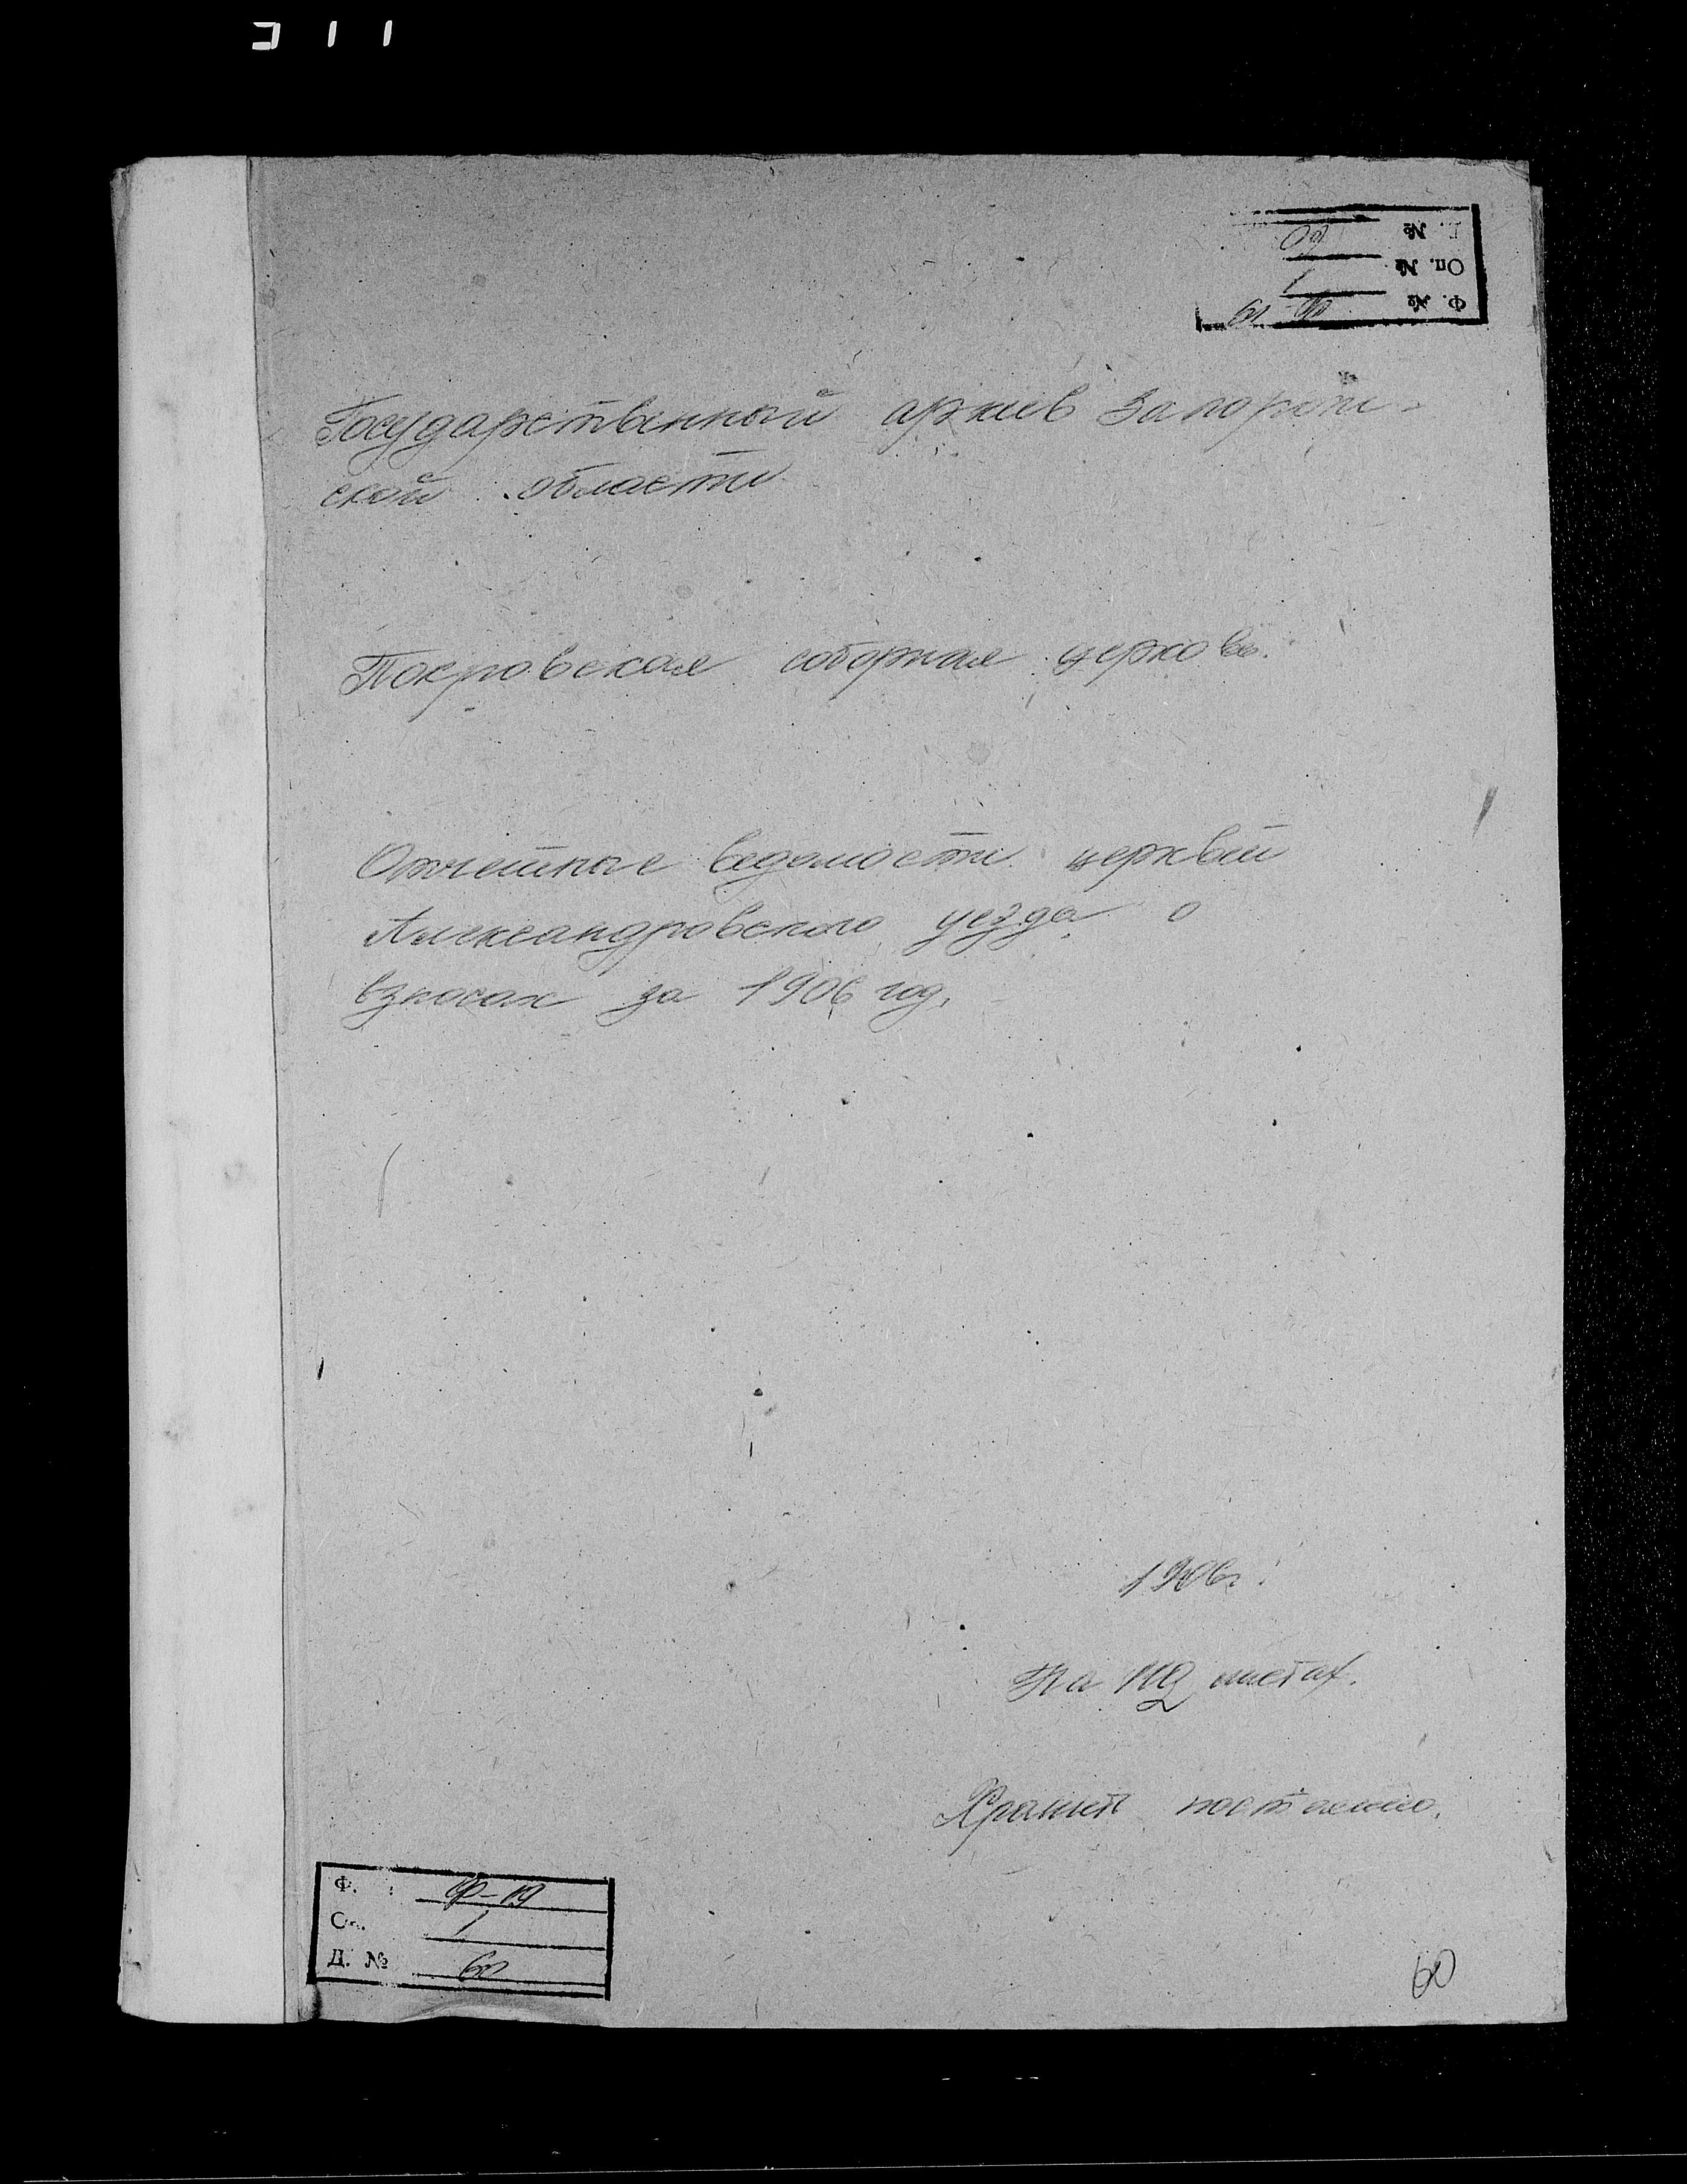 Ф. № Ф-19
Оп. № 1
Е. № 60
Государственный архив Запорож-
ской области
Покровская соборная церковь.
Отчетные ведомости церквей
Александровского уезда о
взносах за 1906 год.
1906г.
На листах.
Хранить постоянно.
Ф. Ф-19
Оп. 1
Д. № 60
60